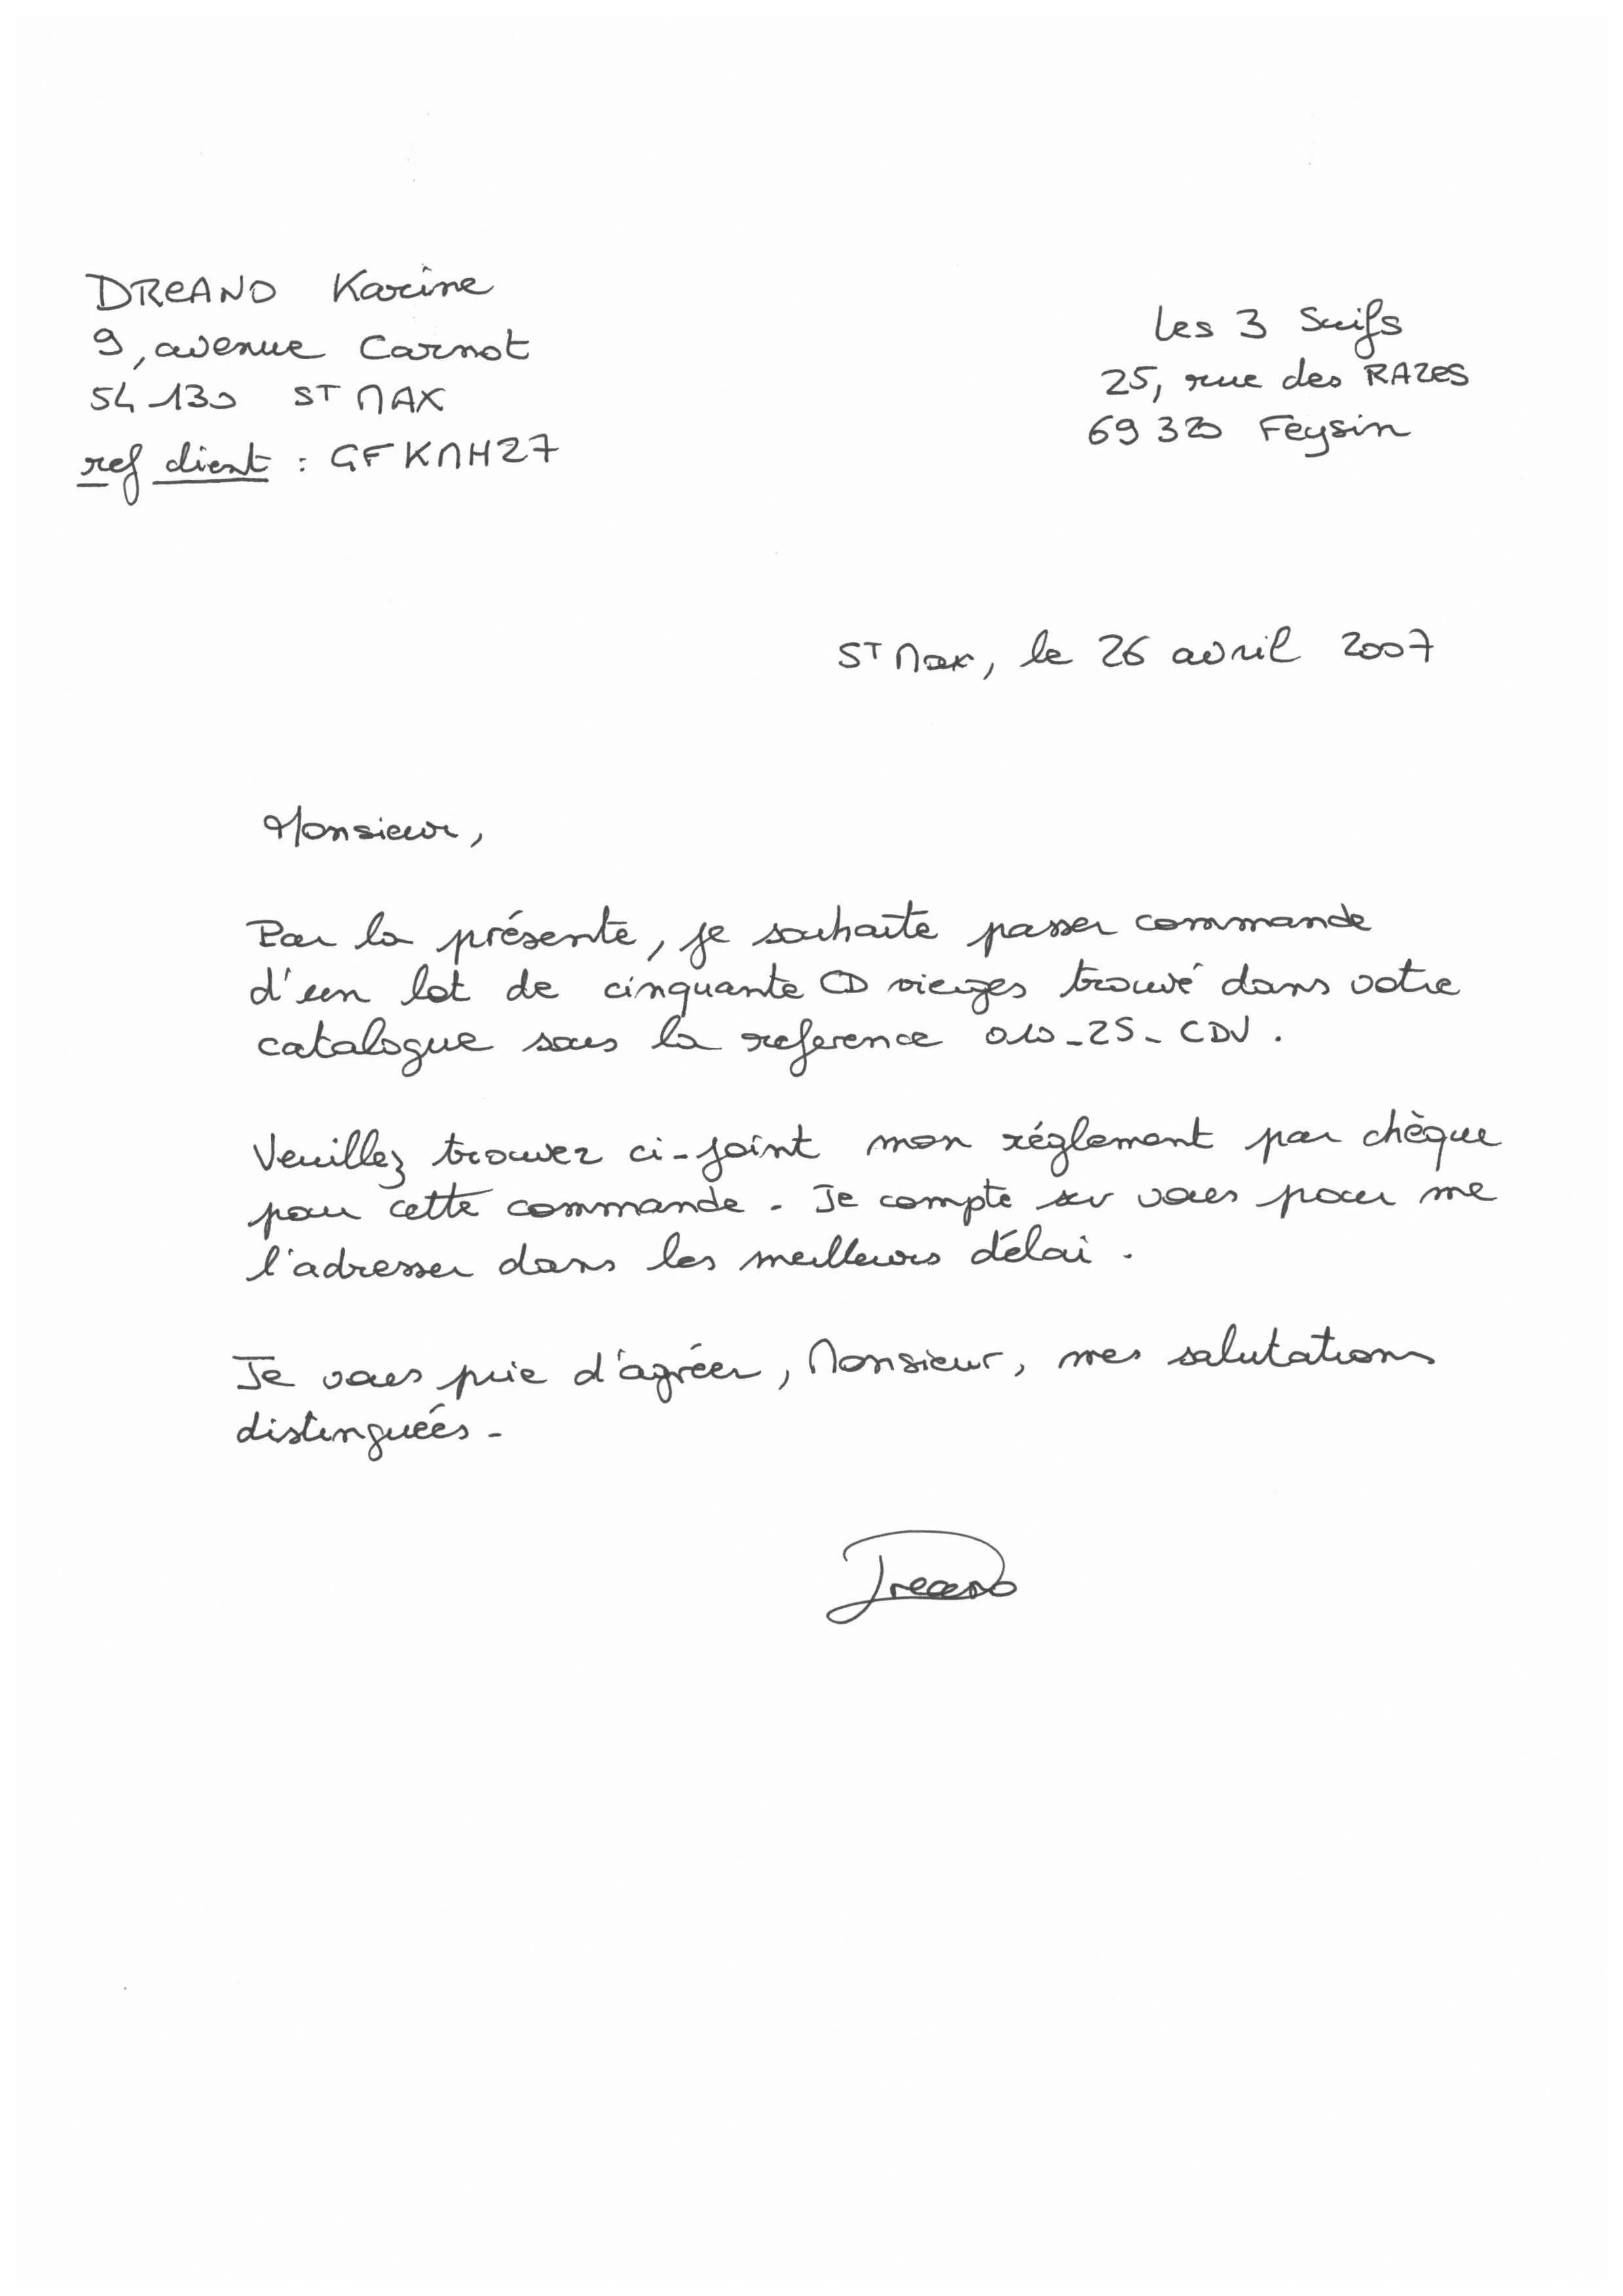 DREANO Karine
9, avenue Carnot
54130 ST MAX
ref client : GFKMH27
les 3 Suifs
25, rue des RAZES
69320 Feysin
ST Max, le 26 avril 2007
Monsieur,
Par la présente, je souhaite passer commande
d'un lot de cinquante CD vierges trouvé dans votre
catalogue sous la reference 010-25-CDV.
Veuillez trouver ci-joint mon réglement par chèque
pour cette commande. Je compte sur vous pour me
l'adresser dans les meilleurs délai.
Je vous prie d'agréer, Monsieur, mes salutations
distinguées.
Dreano